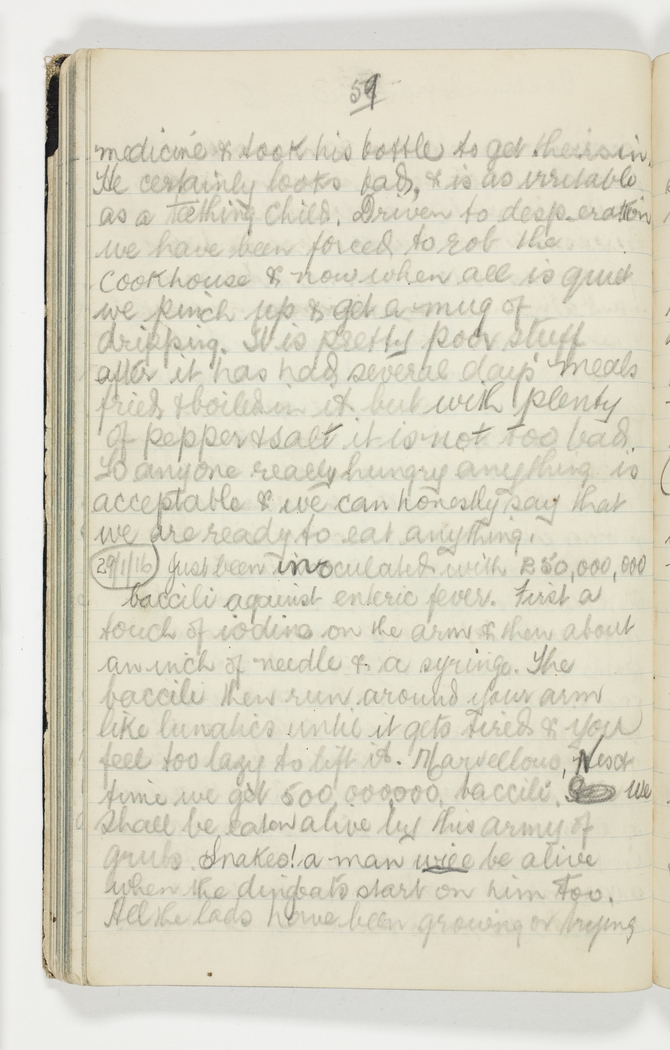 59
medicine & took his bottle to get theirs in.
He certainly looks bad, & is as irritable
as a teething child. Driven to desperation
we have been forced to rob the
cookhouse & now when all is quiet
we pinch up & get a mug of
dripping. It is pretty poor stuff
after it has had several days' meals
fried & boiled in it but with plenty
of pepper & salt it is not too bad.
To anyone really hungry anything is
acceptable & we can honestly say that
we are ready to eat anything.
29/1/16 Just been inoculated with 250,000,000
baccili against enteric fever. First a
touch of iodine on the arm & then about
an inch of needle & a syringe. The
baccili then run around your arm
like lunatics until it gets tired & you
feel too lazy to lift it. Marvellous, Next
time we get 500,000000, baccili. We
shall be eaten alive by this army of
grubs. Snakes! a man will be alive
when the dingbats start on him too.
All the lads have been growing or trying